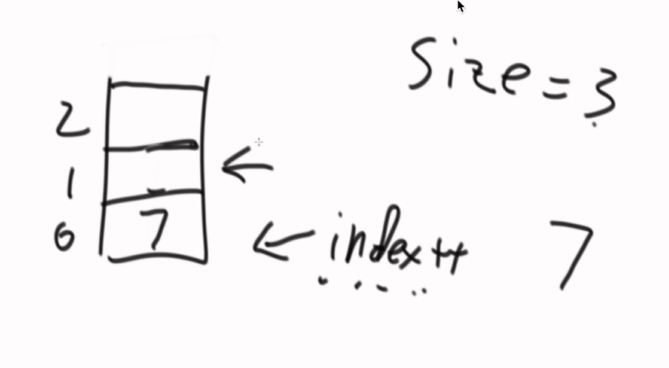 size=3
2
1
0 7
index++ 7